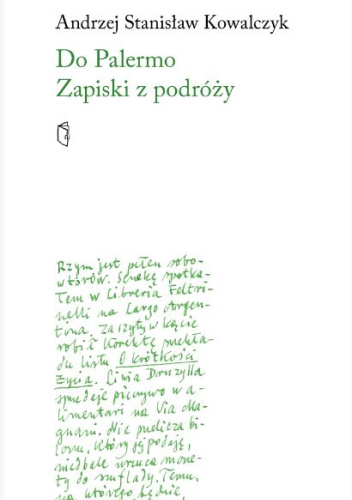 Andrzej Stanisław Kowalczyk
Do Palermo
Zapiski z podróży
Rzym jest pełen sobo-
wtórów. Senekę spotka-
łem w Libreria Feltri-
nelli na Largo Argen-
tina. Zaszyty w kącie
robił korektę przekła-
du listu O krótkości
życia. Liwia Druzylla
sprzedaje pieczywo w a-
limentari na Via Ma-
gnani. Nie przelicza bi-
lonu, który jej podaję,
niedbale wrzuca mone-
ty do szuflady. Temu,
na którego będzie,